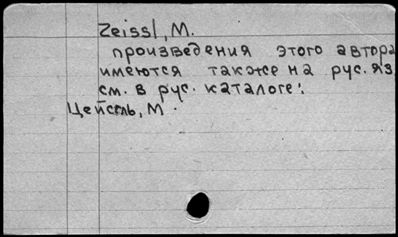 Zeissl, M.
произведения этого автора
имеются также на рус. яз.
см. в рус. каталоге:
Цейссль, М.